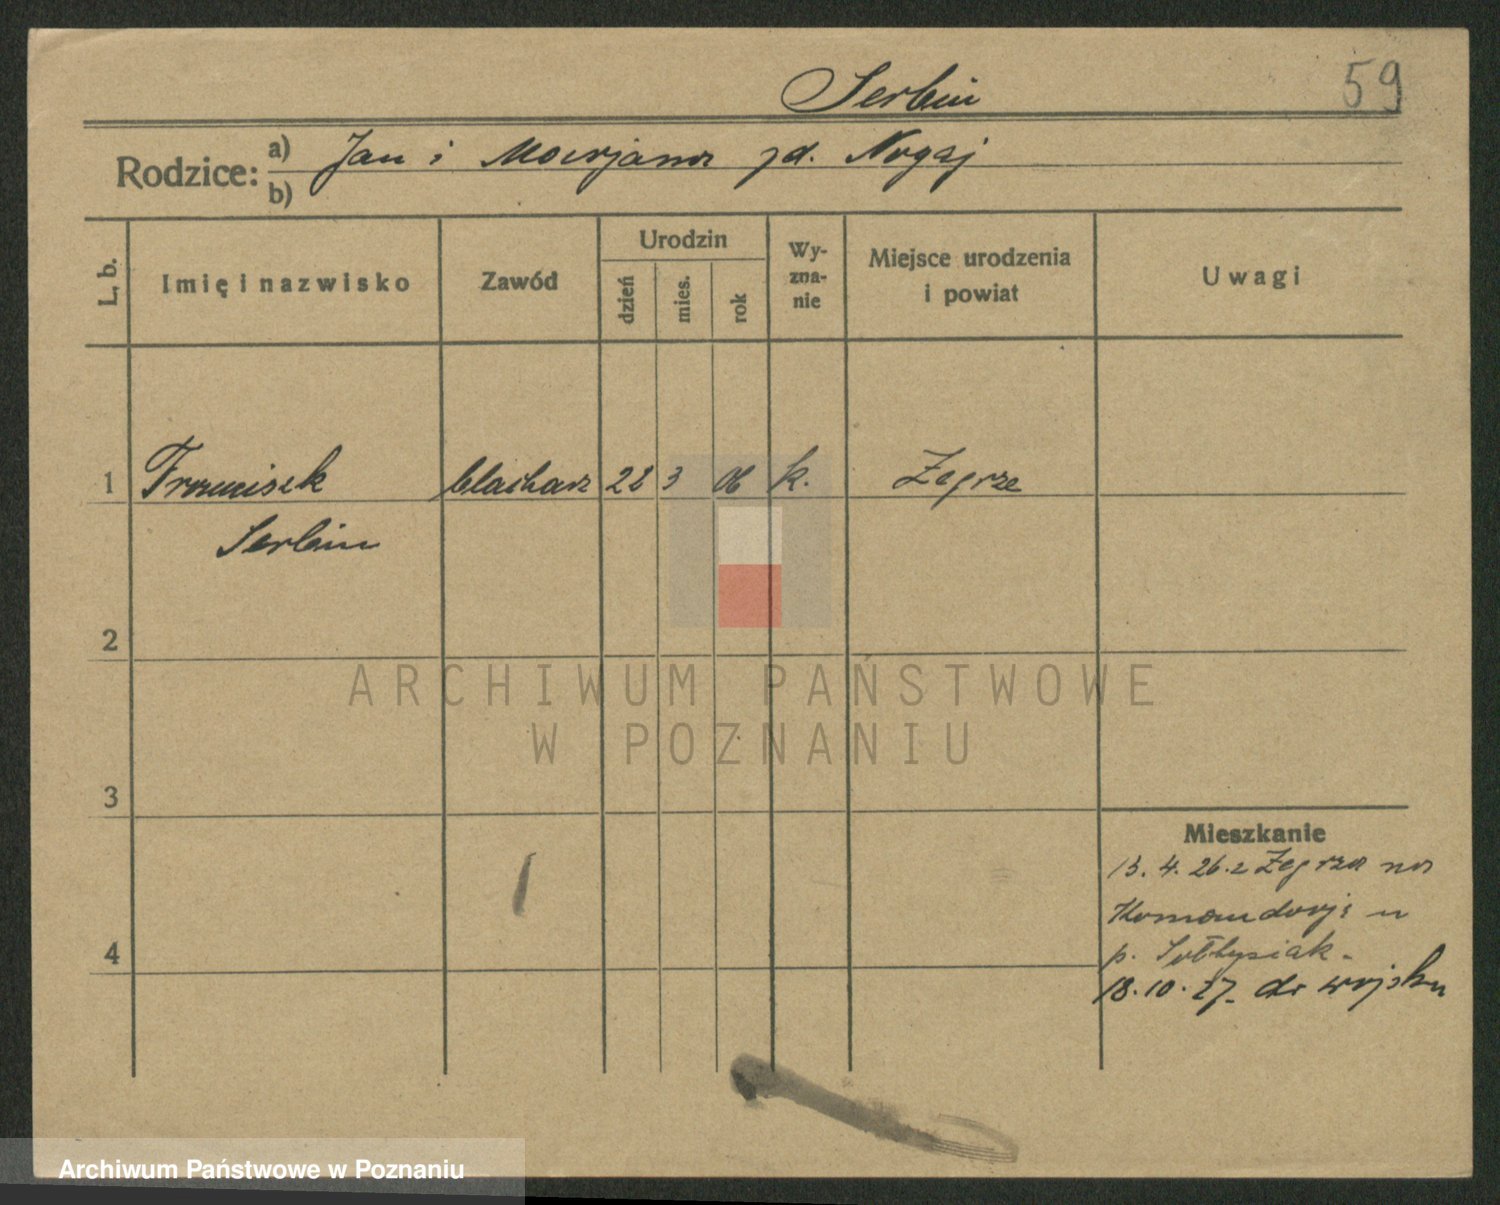 Serbin
59
Rodzice:
a) Jan i Marjanna zd. Nogaj
b)
L. b.
Imię i nazwisko
Zawód
Urodzin
dzień
mies.
rok
Wy-
zna-
nie
Miejsce urodzenia
i powiat
Uwagi
1 Franciszek blacharz 28 3 06 k. Żegrze
Serbin
2
ARCHIWUM PAŃSTWOWE
W POZNANIU
3
Mieszkanie
13.4.26. z Żegrza na
Komandorję u
p. Sołtysiak.
4
18.10.27. do wojska
Archiwum Państwowe w Poznaniu